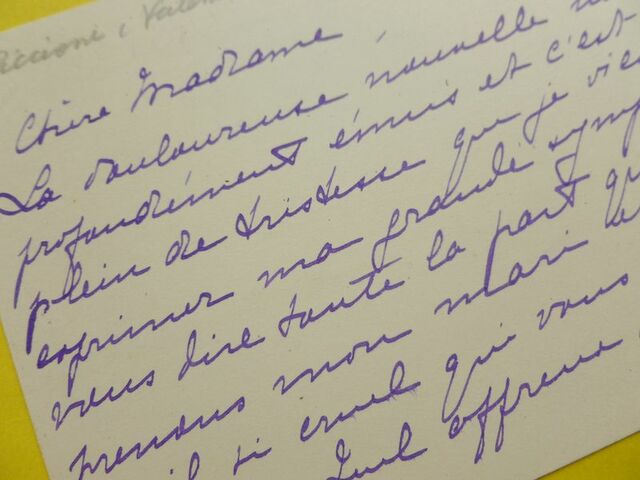 Chère Madame,
La douloureuse nouvelle
profondément émus et c'est
plein de tristesse que je
exprimer ma grande
vous dire toute la part
prenons mon mari
si cruel qui vous
Quel affreux